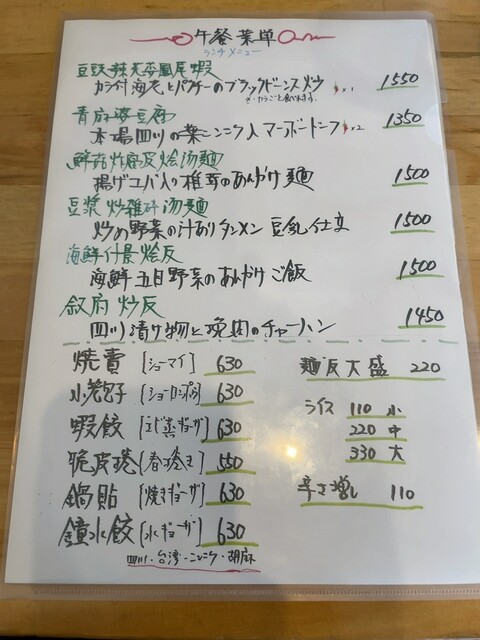 午餐菜単
ランチメニュー
豆豉辣炒鳳尾蝦
カラ付海老とパクチーのブラックビーンズ炒 1550
カラごと食べれます。
青麻婆豆腐
本場四川の葉ニンニク入マーボードーフ x2 1350
揚げユバ入り椎茸のあんかけ麺 1500
豆漿炒雑砕湯麺
炒め野菜の汁ありタンメン 豆乳仕立 1500
海鮮什景烩反
海鮮五目野菜のあんかけご飯 1500
叙府炒反
四川漬け物と挽肉のチャーハン 1450
焼賣 [シューマイ] 630
小籠包子 [ショーロンポウ] 630
蝦餃 [エビ蒸ギョーザ] 630
脆皮捲 [春捲き] 550
鍋貼 [焼きギョーザ] 630
鐘水餃 [水ギョーザ] 630
四川・台湾・ニンニク・胡麻
麺反大盛 220
ライス 110 小
220 中
330 大
辛さ増し 110